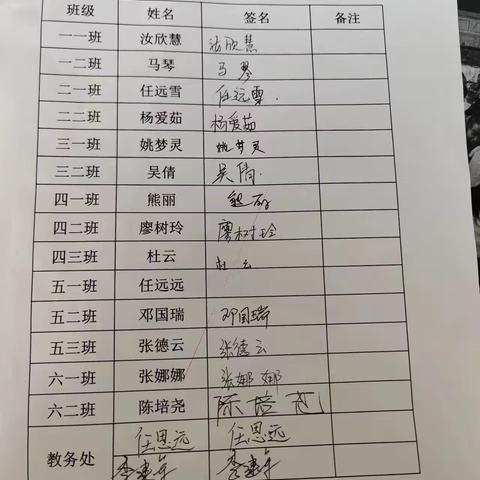 班级 姓名 签名 备注
一一班 汝欣慧 汝欣慧
一二班 马琴 马琴
二一班 任远雪 任远雪.
二二班 杨爱茹 杨爱茹
三一班 姚梦灵 姚梦灵
三二班 吴倩 吴倩.
四一班 熊丽 熊丽
四二班 廖树玲 廖树玲
四三班 杜云 杜云
五一班 任远远
五二班 邓国瑞 邓国瑞
五三班 张德云 张德云
六一班 张娜娜 张娜娜
六二班 陈培尧 陈培尧
任恩远 任恩远
教务处